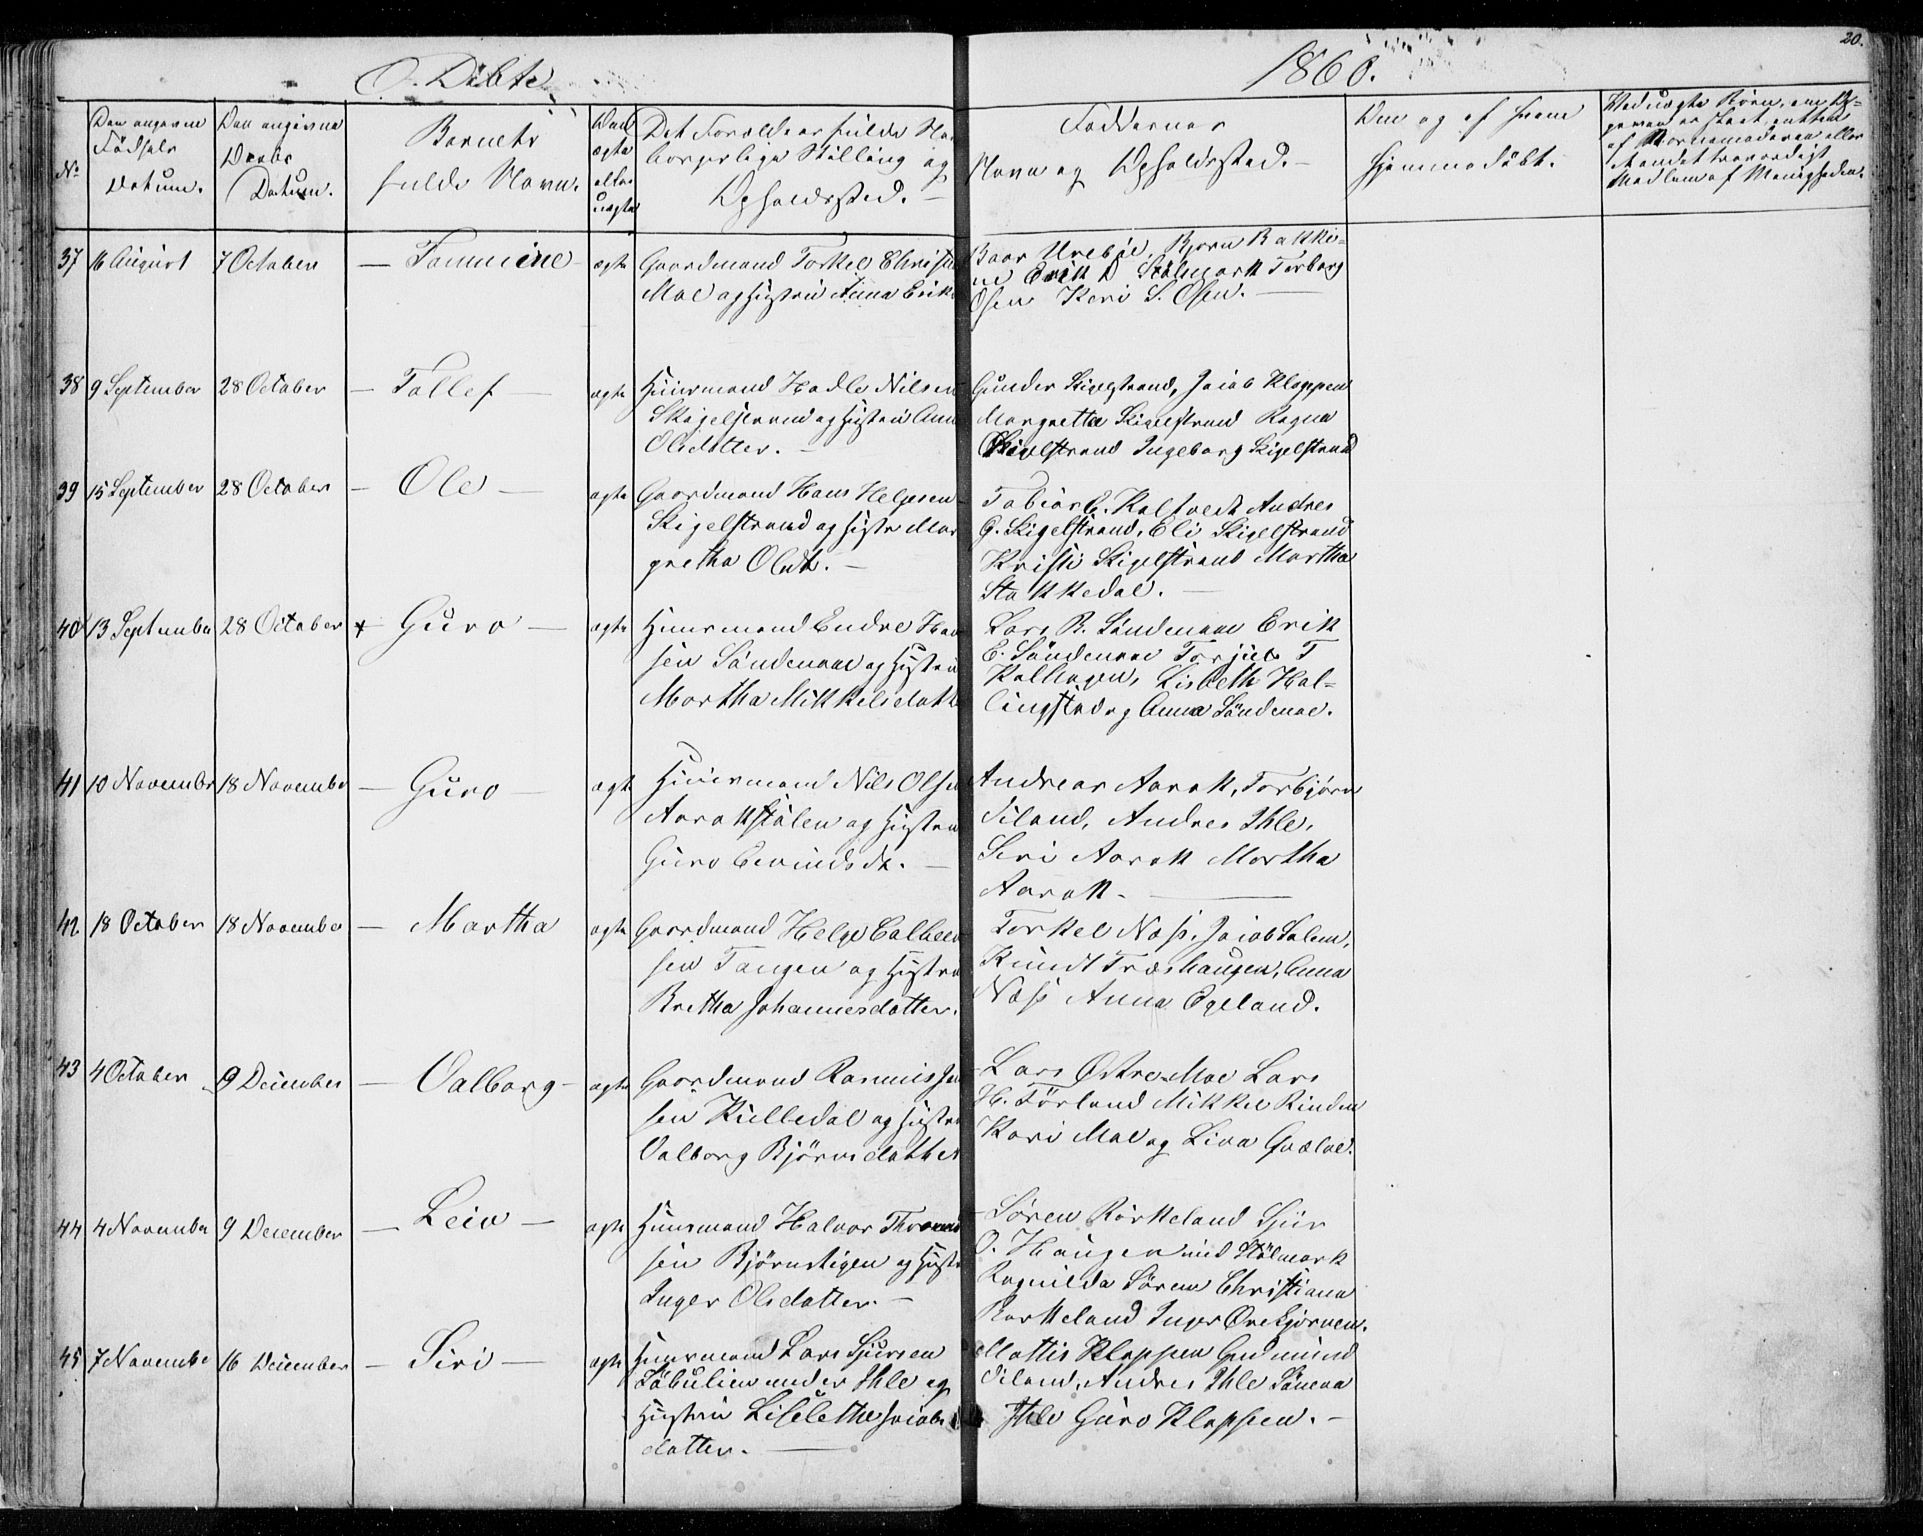 Döbte
1860.
20.
No
Den angivne Födsels Datum.
Den angivne Daabs Datum.
Barnets fulde Navn.
ægte eller uægte
Det Forældres fulde Na
borgerlige Stilling og
Opholdssted. —
Faddernes
Navn og Opholdssted. —
Den og af hvem
hjemmedöbt.
37 16 August 7 October — — ægte Gaardmand Torkel Christe
Moe og Hustru Anna Eriks
Baar Urebøe, Bjorn Bakke=
Erik D Stölmark Torborg
Osen Kari S. Osen. —
38 9 September 28 October — Tollef — ægte Huusmand Hadle Nilsen
Skigelstrand og Hustru Ann
Olsdatter. —
Gunder Skigelstrand, Jacob Kloppen
Margretta Skigelstrand Ragna
Skigelstrand Ingeborg Skigelstrand
39 15 September 28 October — Ole — ægte Gaardmand Hans Helgesen
Skigelstrand og Hustr Mar
gretha Olsdt. —
Tobias C. Kaltvedt Andres
G. Skigelstrand, Eli Skigelstrand
Kristi Skigelstrand Martha
Stakkedal. —
40 13 September 28 October + Guro — ægte Huusmand Endre Han
sen Söndenaae og Hustru
Martha Mikkelsdatt
Lars R. Söndenaae Erik
E. Söndenaae Torjul T
Kolhagen, Lisbeth Hal=
lingstad og Anna Söndenae.
41 10 November 18 November — Guro — ægte Huusmand Nils Olsen
Aarakstölen og Hustru
Guro Eevindsdt. —
Andreas Aarak, Torbjörn
Öiland, Andres Ihle,
Seri Aarak Martha
Aarak. —
42 18 October 18 November — Martha ægte Gaardmand Helge Colbeen
sen Tangen og Hustru
Bretha Johannesdatter.
Torkel Næss, Jacob Solem,
Knudt Træshaugen, Anna
Næss Anna Egeland.
43 4 October 9 December — Valborg — ægte Gaardmand Rasmus Ja
sen Killedal og Hustru
Valborg Björnsdatter
Lars Østre Moe Lars
H. Förland Mikkel Rinden
Kari Moe og Liva Qvaloe.
44 4 November 9 December — Leiv — ægte Huusmand Halvor Thorm
sen Björnstigen og Hustr
Inger Olsdatter. —
Sören Rörkeland Sjur
O. Haugen und Stölmark
Ragnilda Sören Christiana
Rorkeland Inger Övregjerven.
45 7 November 16 December — Siri — ægte Huusmand Lars Sjursen
Löbulien under Ihle og
Hustru Liselethe Jacobs
datter. —
Mattis Kloppen Gudmund
Öiland, Andres Ihle Söneva
Ihle Guro Kloppen. —